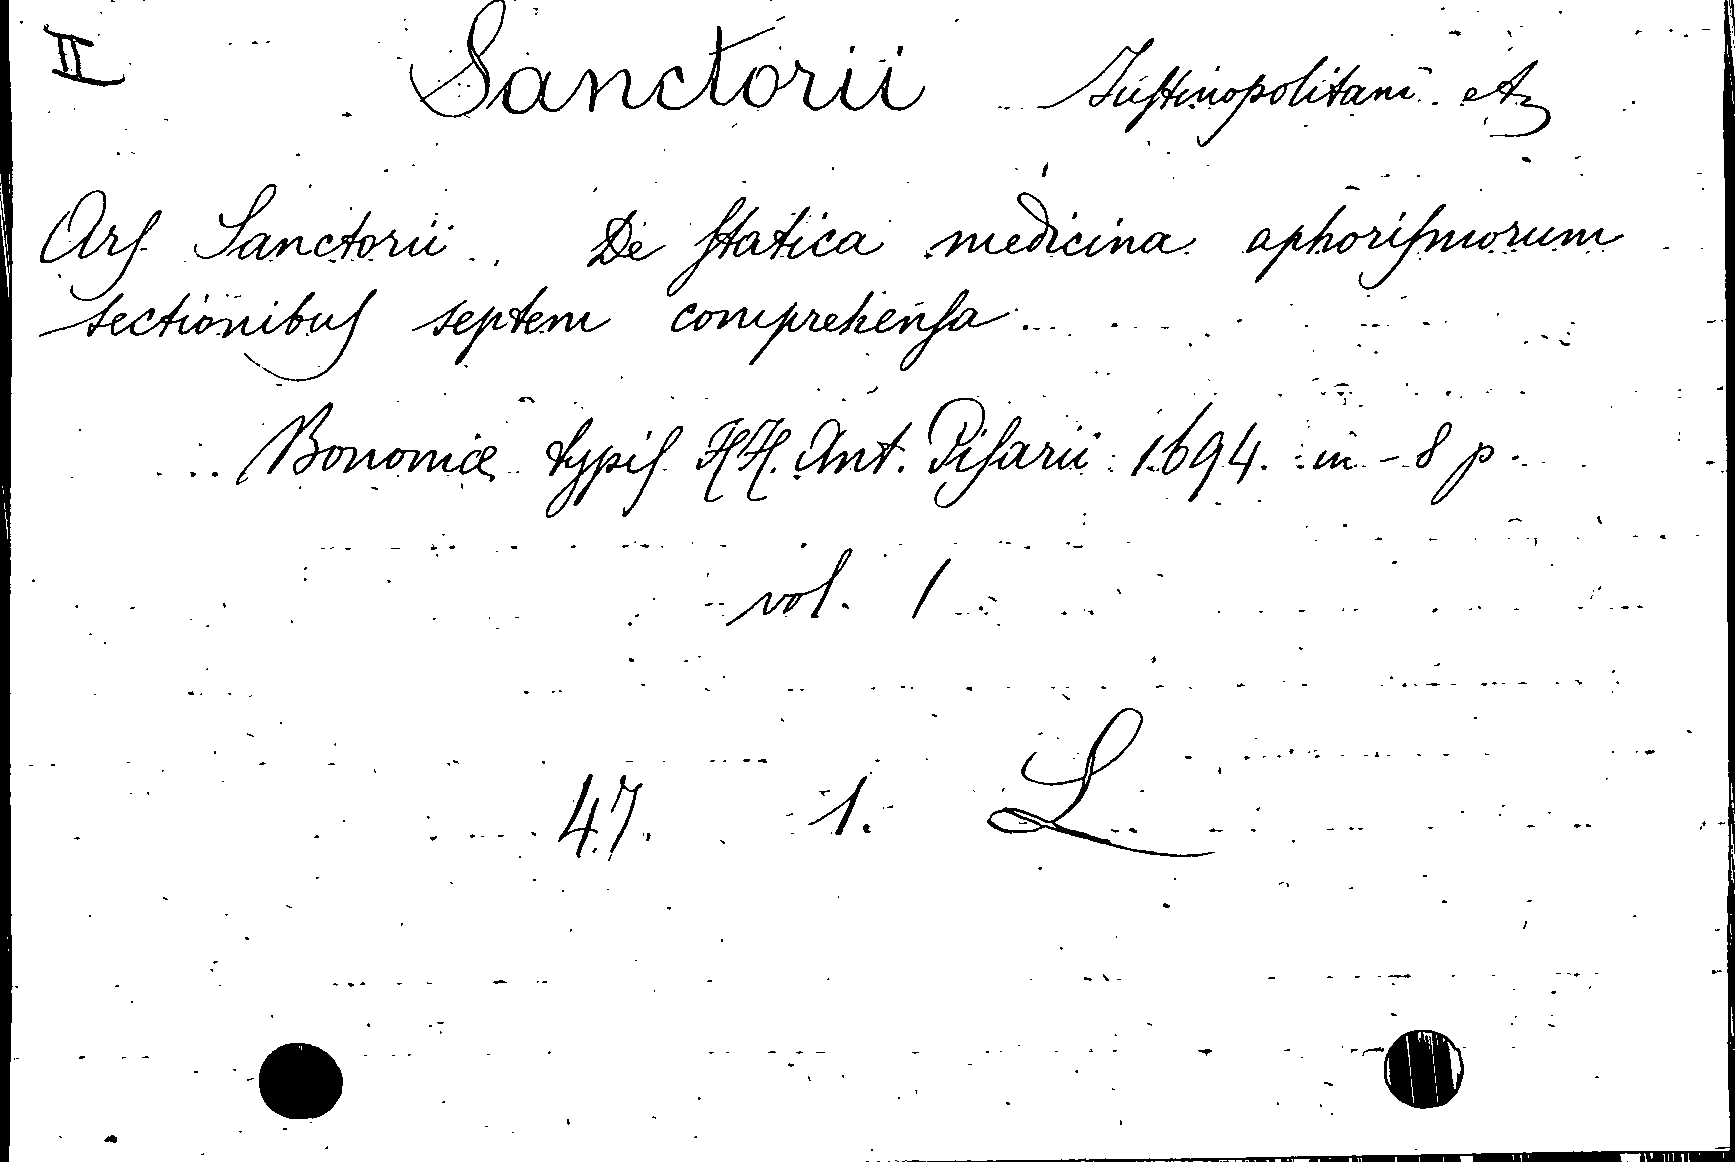 II Sanctorii Justinopolitani etz
Ars Sanctorii . De statica medicina aphorismorum
sectionibus septem comprehensa .
Bononiæ typis HH. Ant. Pisarii 1694. in - 8 p.
vol. 1
47. 1. L